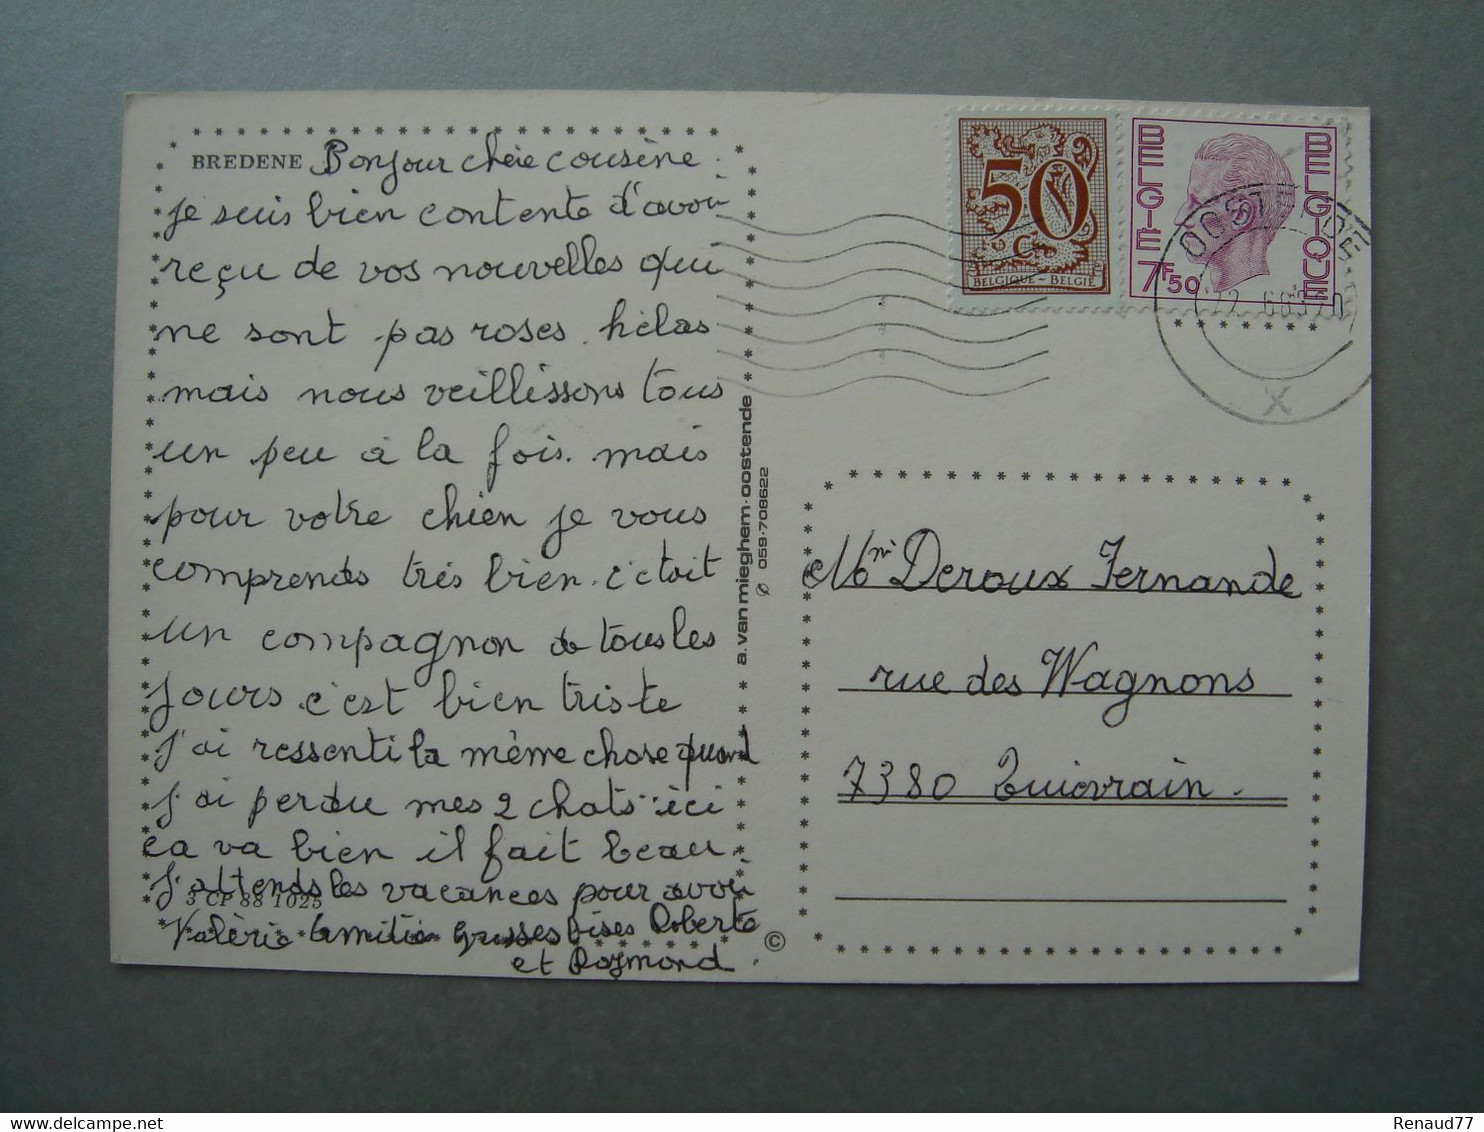 BREDENE Bonjour chére cousène.
je suis bien contente d'avoir
reçu de vos nouvelles qui
ne sont pas roses. hélas
mais nous veillissons tous
un peu à la fois. mais
pour votre chien je vous
comprends très bien. c'etait
un compagnon de tous les
jours. c'est bien triste
j'ai ressenti la même chose quand
j'ai perdu mes 2 chats. ici
ca va bien il fait beau.
j'attends les vacances pour avoir
3 CP 88 1025
Valèrie amitiés grosses bises Roberte
et Raymond.
a. van mieghem - oostende
059-708622
©
50 C
BELGIQUE - BELGIË
BELGIË BELGIQUE
7F50
OOSTENDE
X
Mm Deroux Fernande
rue des Wagnons
7380 Quiévrain.
Renaud77